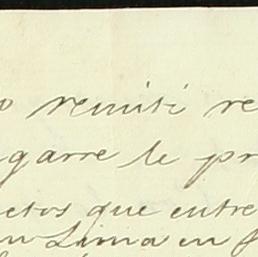 o remiti re
garre le pr
etos que entre
en Lima en